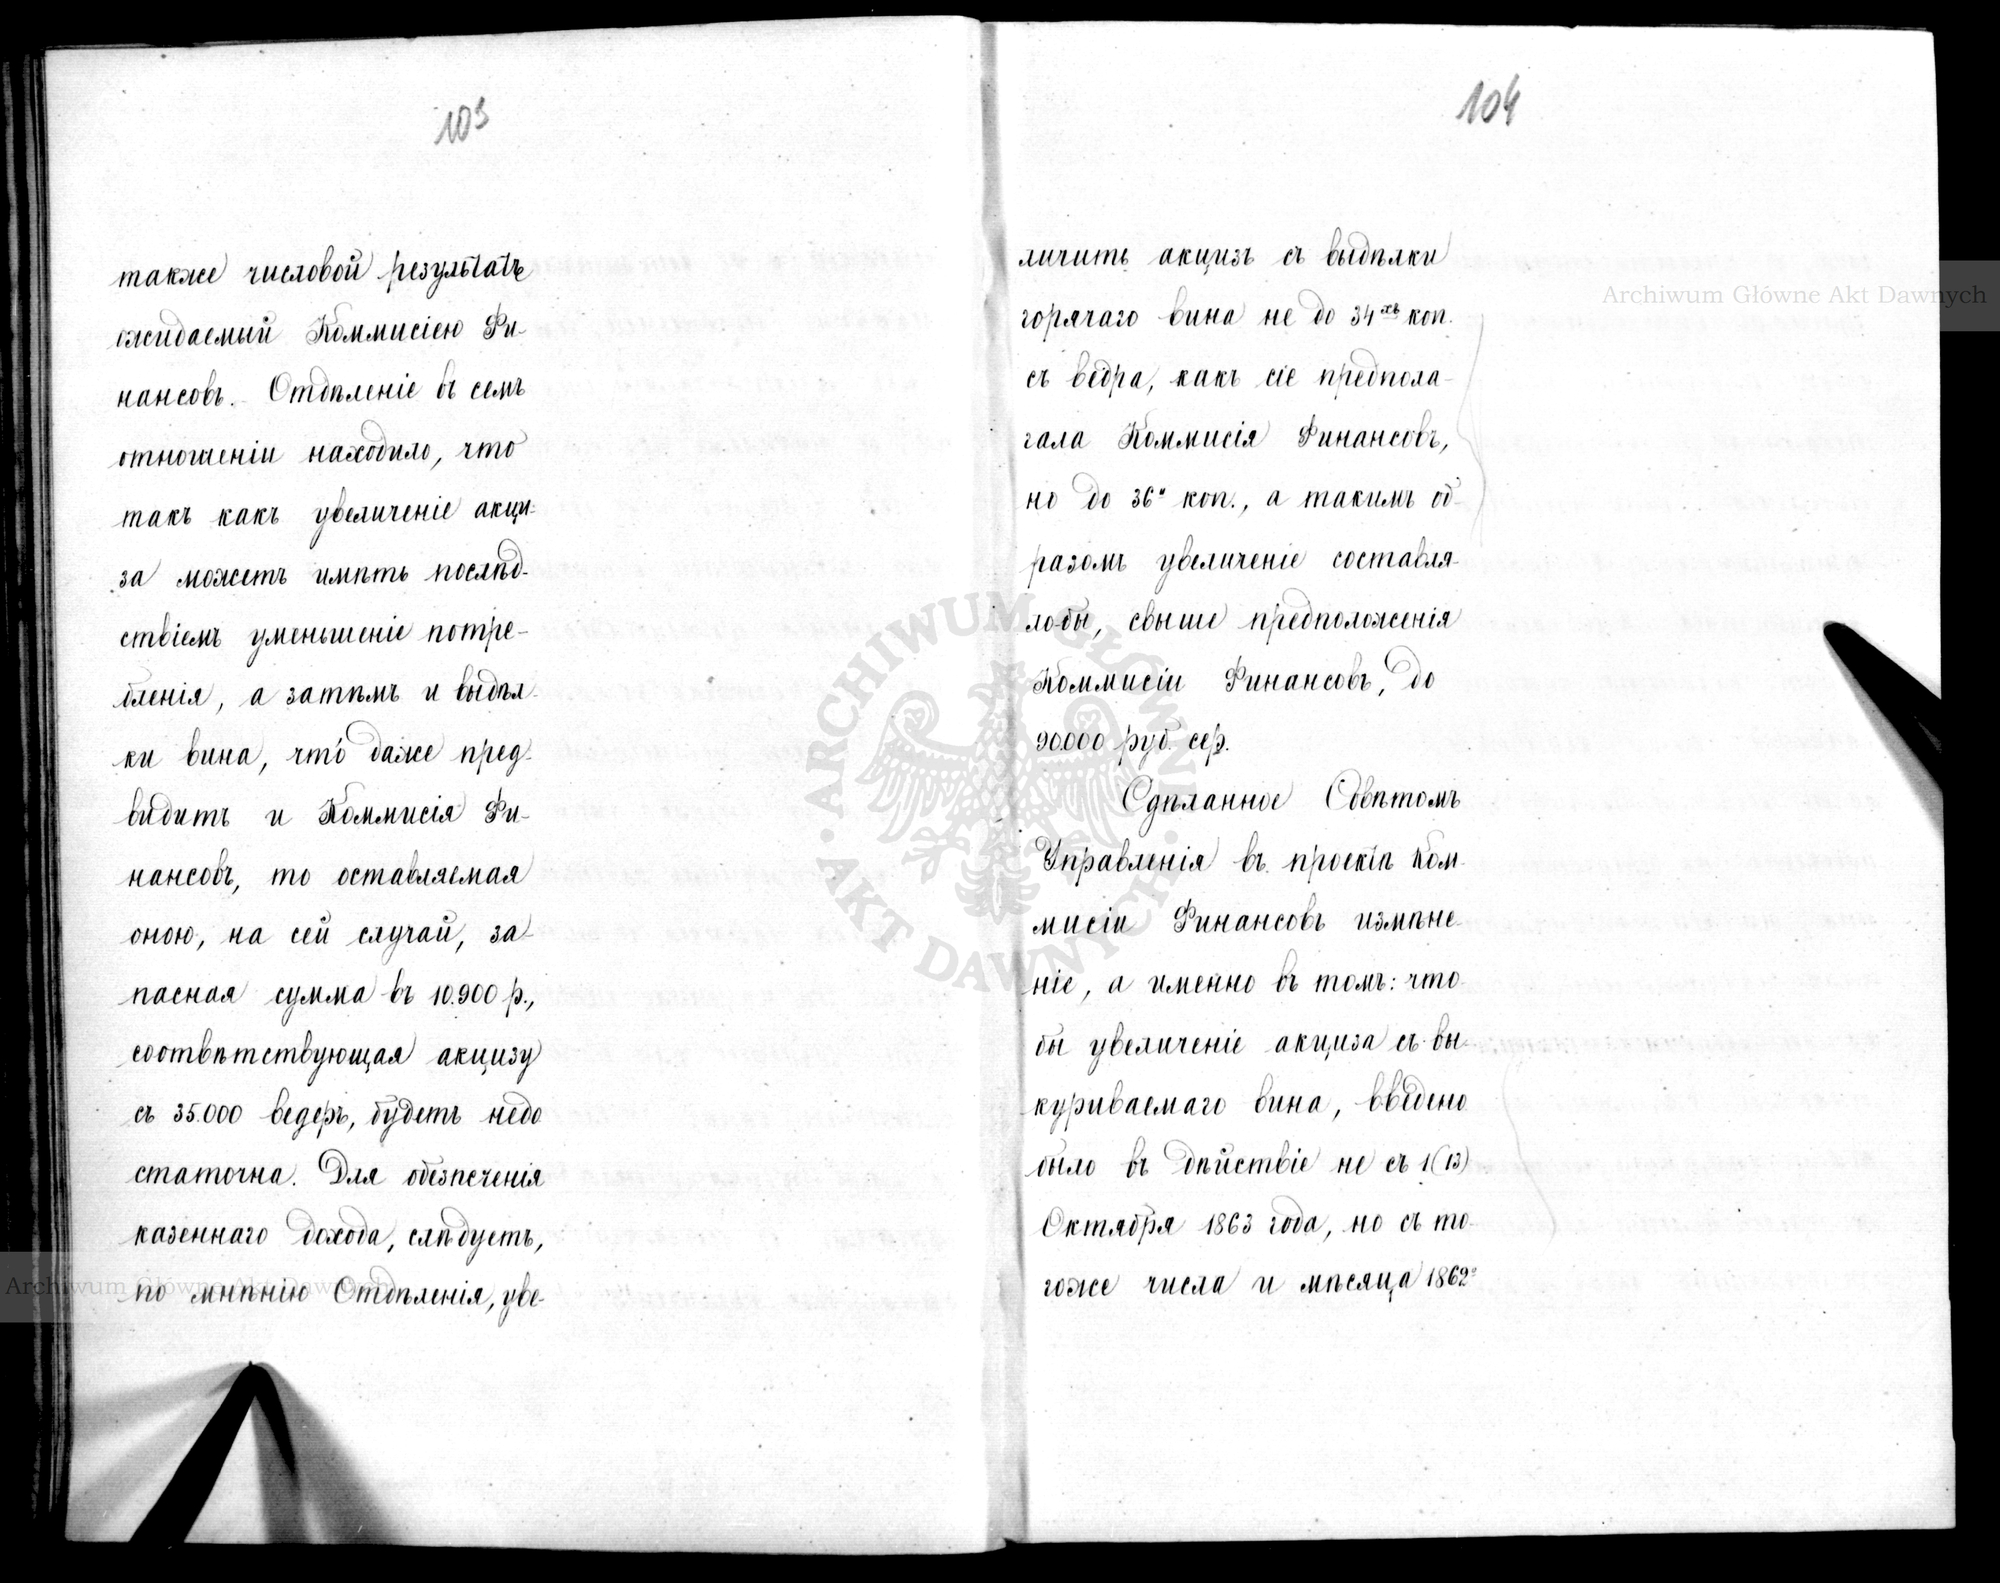 103
также числовой результатъ
ожидаемый Коммисіею Фи-
нансовъ. Отдѣленіе въ семъ
отношеніи находило, что
такъ какъ увеличеніе акци-
за можетъ имѣть послѣд-
ствіемъ уменьшеніе потре-
бленія, а затѣмъ и выдѣл-
ки вина, что́ даже пред-
видитъ и Коммисія Фи-
нансовъ, то оставляемая
оною, на сей случай, за-
пасная сумма въ 10.900 р.,
соотвѣтствующая акцизу
съ 35.000 ведеръ, будетъ недо
статочна. Для обезпеченія
казеннаго дохода, слѣдуетъ,
по мнѣнію Отдѣленія, уве-
104
личить акцизъ съ выдѣлки
горячаго вина не до 34хъ коп.
съ ведра, какъ сіе предпола-
гала Коммисія Финансовъ,
но до 36и коп., а такимъ об-
разомъ увеличеніе составля-
лобы, свыше предположенія
Коммисіи Финансовъ, до
90.000 руб. сер.
Сдѣланное Совѣтомъ
Управленія въ проектѣ Ком-
мисіи Финансовъ измѣне-
ніе, а именно въ томъ: что
бы увеличеніе акциза съ вы-
куриваемаго вина, введено
было въ дѣйствіе не съ 1(13)
Октября 1863 года, но съ то-
гоже числа и мѣсяца 1862г
Archiwum Główne Akt Dawnych
Archiwum Główne Akt Dawnych
ARCHIWUM GŁÓWNE AKT DAWNYCH